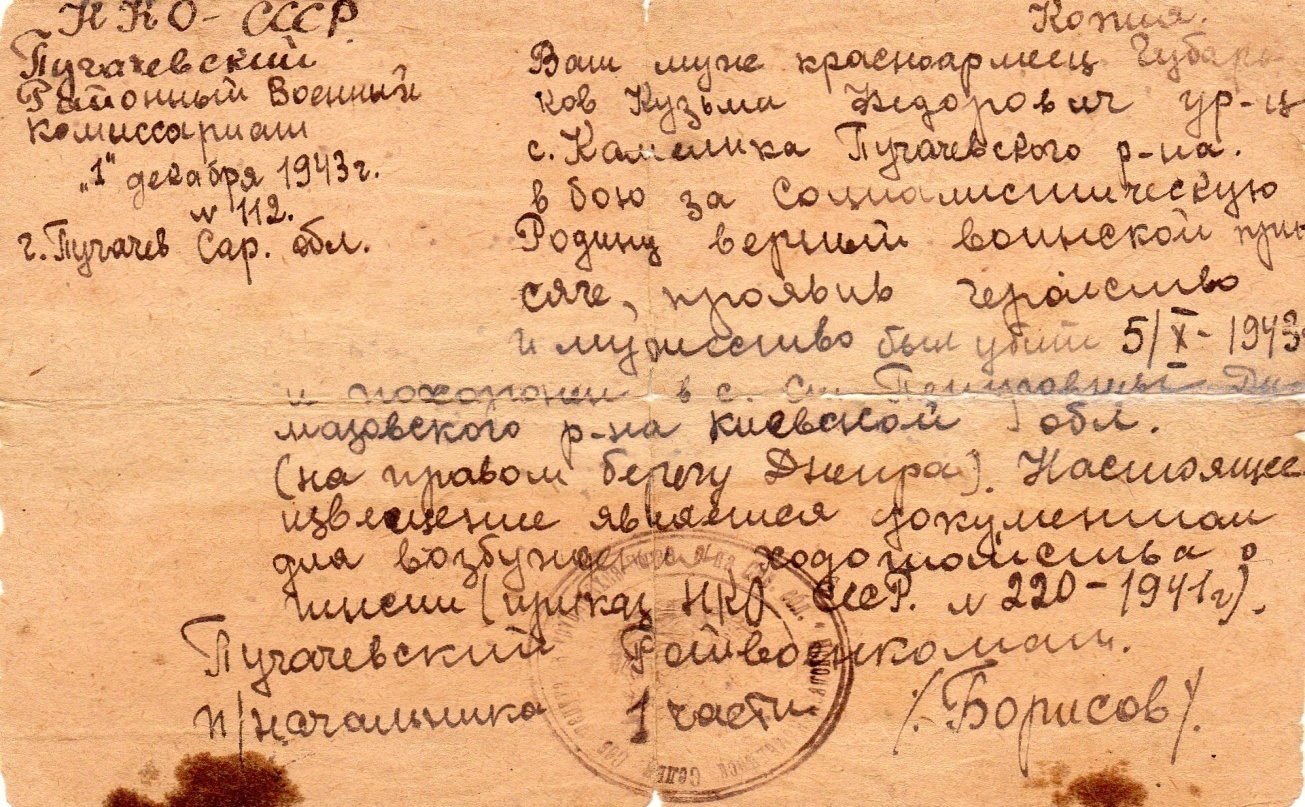 НКО - СССР
Пугачевский
Районный Военный
комиссариат
„1" декабря 1943 г.
№ 112.
г. Пугачев Сар. обл.
Копия.
Ваш муж красноармеец Губарь-
ков Кузьма Федорович ур-ц
с. Камелика Пугачевского р-на.
в бою за Социалистическую
Родину верный воинской при-
сяге, проявив геройство
и мужество был убит 5/X - 1943
и похоронен в с.
р-на Киевской обл.
(на правом берегу Днепра). Настоящее
извещение является документом
для возбужден ходотайства о
пнсии (приказ НКО СССР. № 220 - 1941 г).
Пугачевский Райвоенкомат.
п/начальника 1 части. /Борисов/.